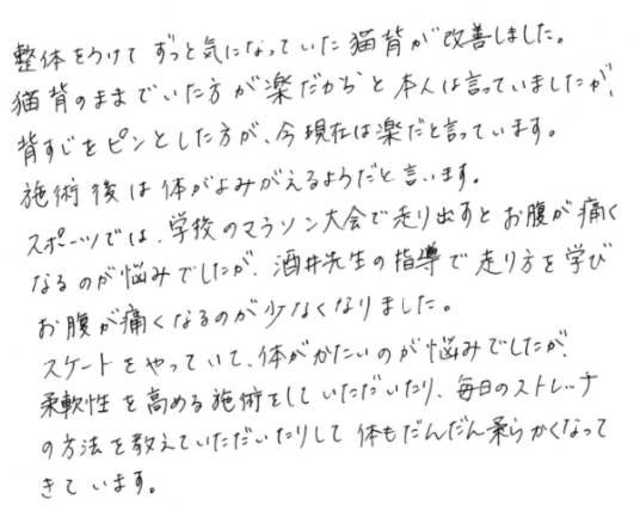 整体をうけて ずっと気になっていた猫背が改善しました。
猫背のままでいた方が楽だからと本人は言っていましたが、
背すじをピンとした方が、今現在は楽だと言っています。
施術後は体がよみがえるようだと言います。
スポーツでは、学校のマラソン大会で走り出すとお腹が痛く
なるのが悩みでしたが、酒井先生の指導で走り方を学び
お腹が痛くなるのが少なくなりました。
スケートをやっていて、体がかたいのが悩みでしたが、
柔軟性を高める施術をしていただいたり、毎日のストレッチ
の方法を教えていただいたりして体もだんだん柔らかくなって
きています。